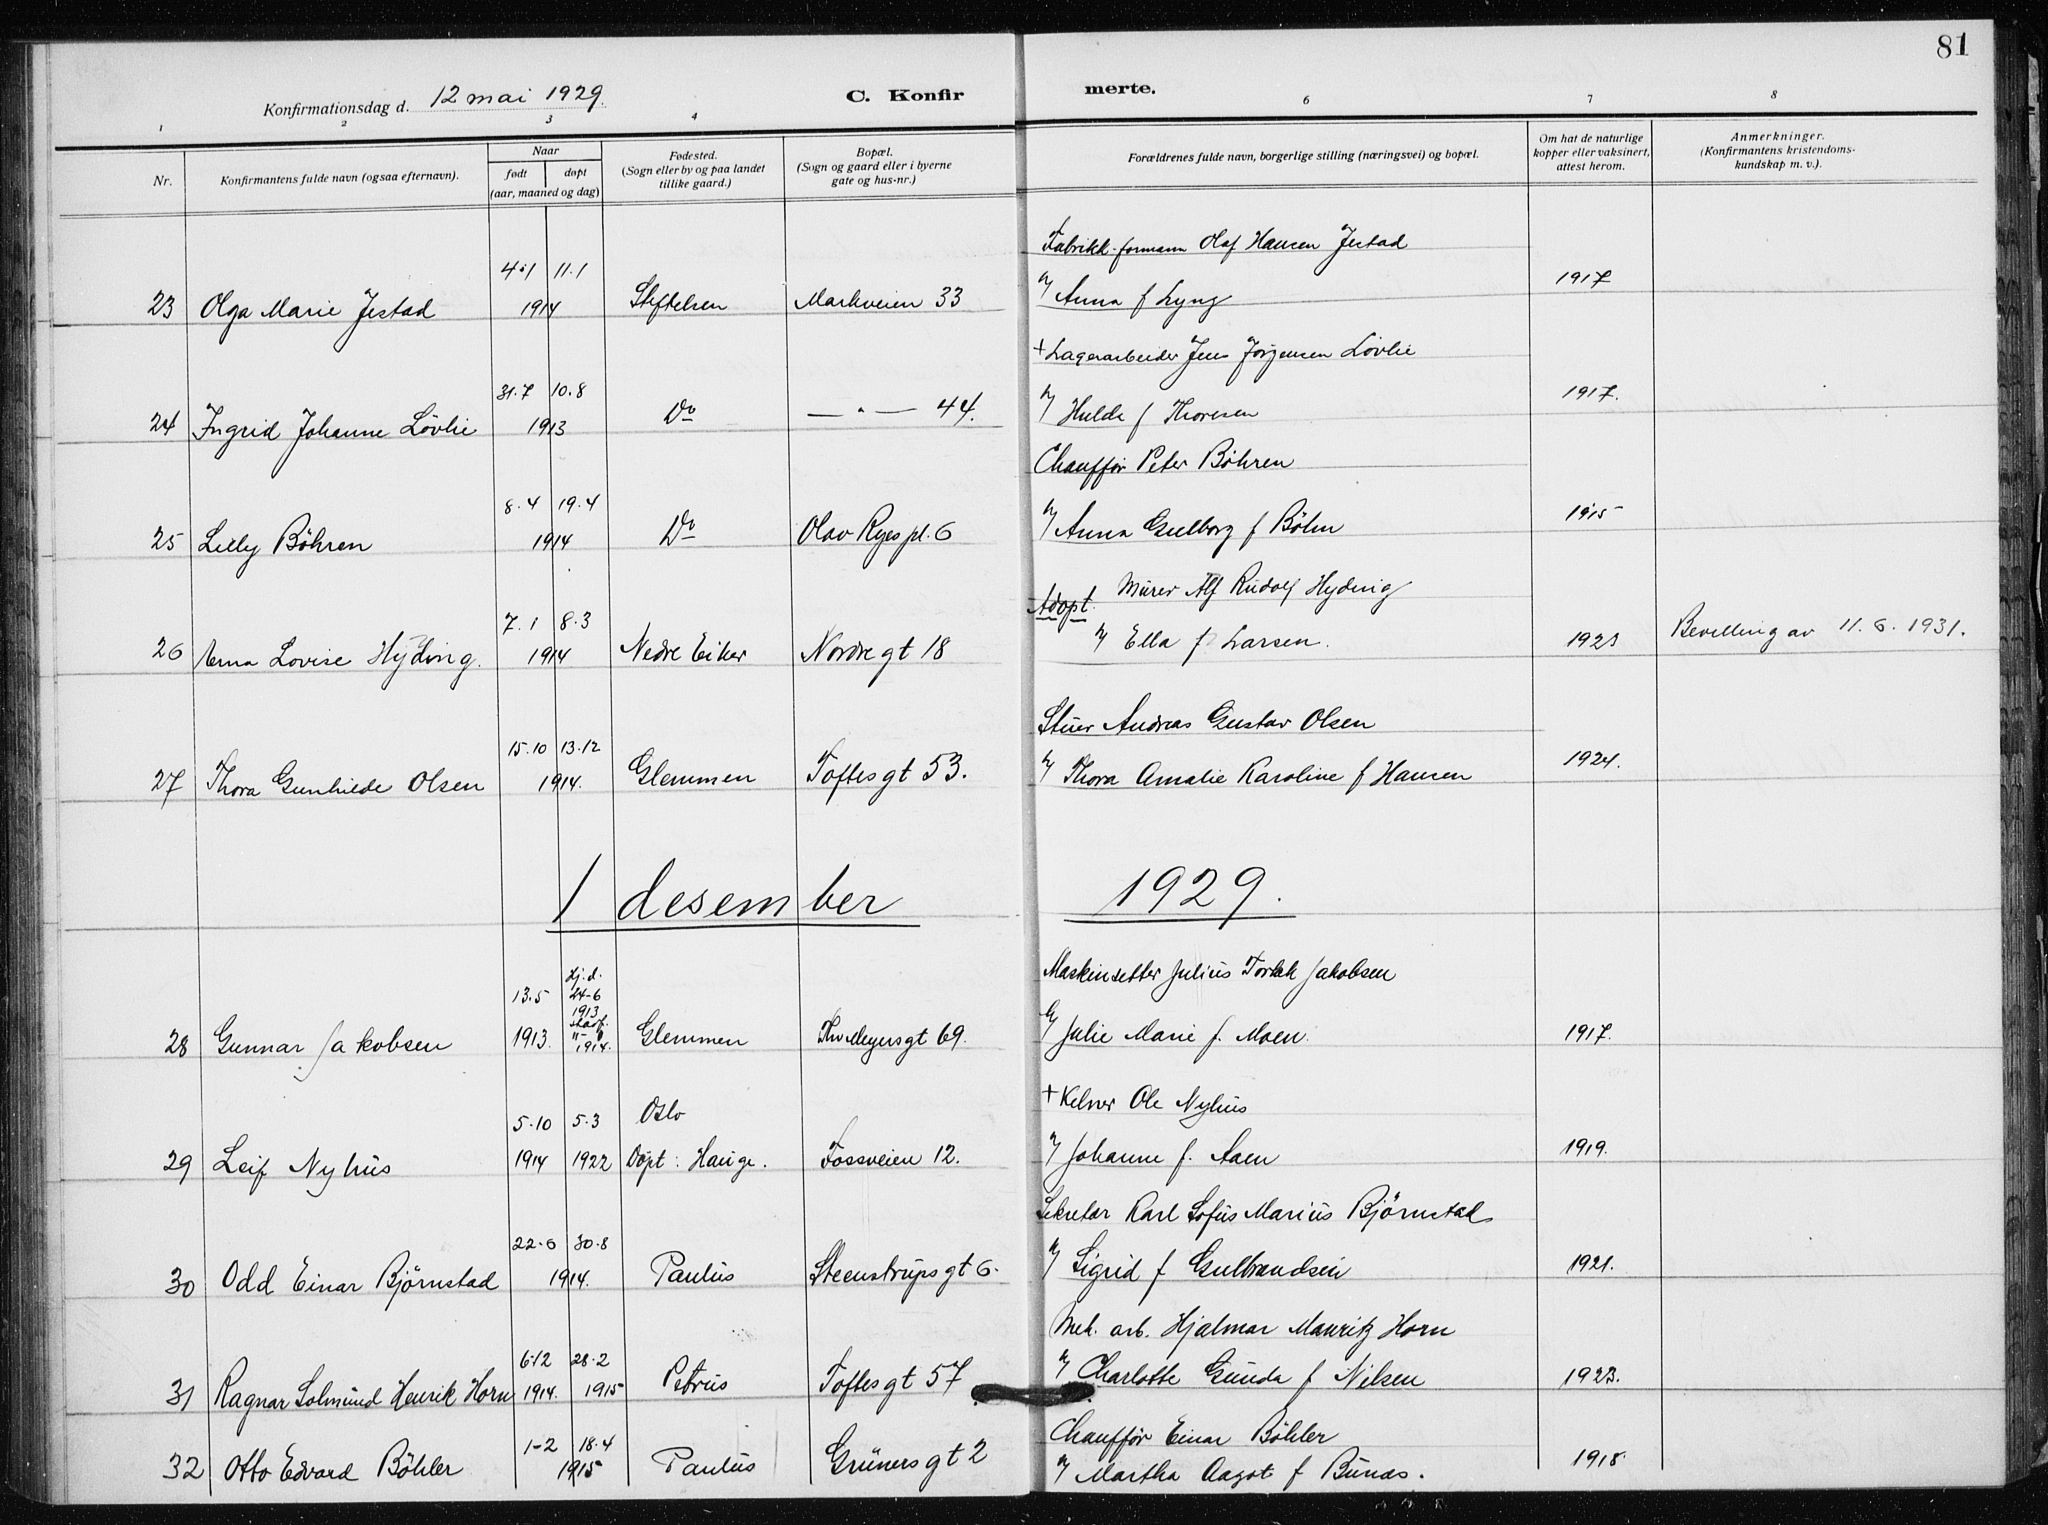 81
Konfirmationsdag d. 12 mai 1929.
C. Konfir merte.
1 2 3 4 6 7 8
Nr.
Konfirmantens fulde navn (ogsaa efternavn).
Naar
født døpt
(aar, maaned og dag)
Fødested.
(Sogn eller by og paa landet
tillike gaard.)
Bopæl.
(Sogn og gaard eller i byerne
gate og hus-nr.)
Forældrenes fulde navn, borgerlige stilling (næringsvei) og bopæl.
Om hat de naturlige
kopper eller vaksinert,
attest herom.
Anmerkninger.
(Konfirmantens kristendoms-
kundskap m. v.).
Fabrikk-formann Olaf Hansen Jestad
4.1 11.1
23 Olga Marie Jestad 1914 Stiftelsen Markveien 33 Anna f Lyng 1917
+ Lagerarbeider Jens Jørgensen Løvlie
31.7 10.8
24 Ingrid Johanne Løvlie 1913 Do — " — 44. Hulda f Thoresen 1917.
Chauffør Peter Böhren
8.4 19.4
25 Lilly Böhren 1914 Do Olav Ryes pl. 6 Anna Gulborg f Böhn 1915
Adopt. Murer Alf Rudolf Hyding
7.1 8.3
26 Erna Lovise Hyding. 1914 Nedre Eiker Nordre gt 18 Ella f Larsen. 1923 Bevilling av 11.6.1931.
Stuer Andreas Gustav Olsen
15.10 13.12
27 Thora Gunhilde Olsen 1914. Glemmen Toftesgt 53. Thora Amalie Karoline f Hansen 1924.
1 desember 1929.
Maskinsetter Julius Torleik Jakobsen
13.5 Hj.d. 24-6 1913
28 Gunnar Jakobsen 1913. 1914. Glemmen Thv Meyersgt 69. Julie Marie f. Moen. 1917.
+ Kelner Ole Nyhus
5.10 5.3 Oslo
29 Leif Nyhus 1914 1922 Døpt: Hauge. Fossveien 12. Johanne f. Aaen 1919.
Sekretær Karl Sofus Marius Bjørnstad
22.6 30.8
30 Odd Einar Bjørnstad 1914. Paulus Steenstrupsgt 6. Sigrid f Gulbrandsen 1921.
Mek. arb. Hjalmar Mauritz Horn
6.12 28.2
31 Ragnar Solmund Henrik Horn 1914. 1915 Petrus Toftesgt 57 Charlotte Gunda f Nilsen 1923.
Chauffør Einar Böhler
1-2 18.4
32 Otto Edvard Böhler 1915 Paulus Grünersgt 2 Martha Aagot f Bunæs. 1918.